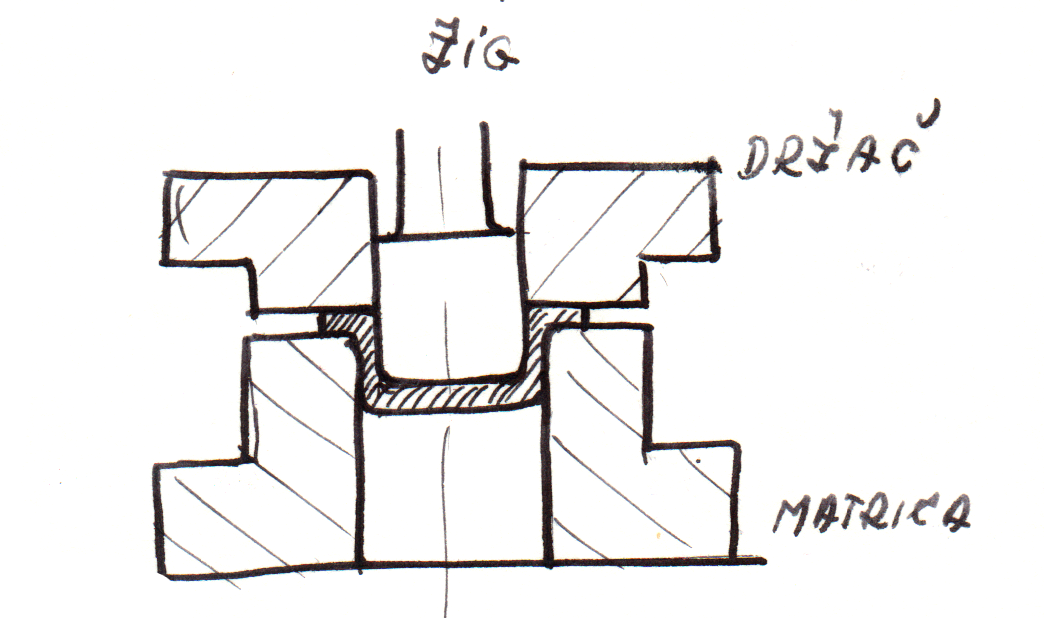 ŽIG
DRŽAČ
MATRICA